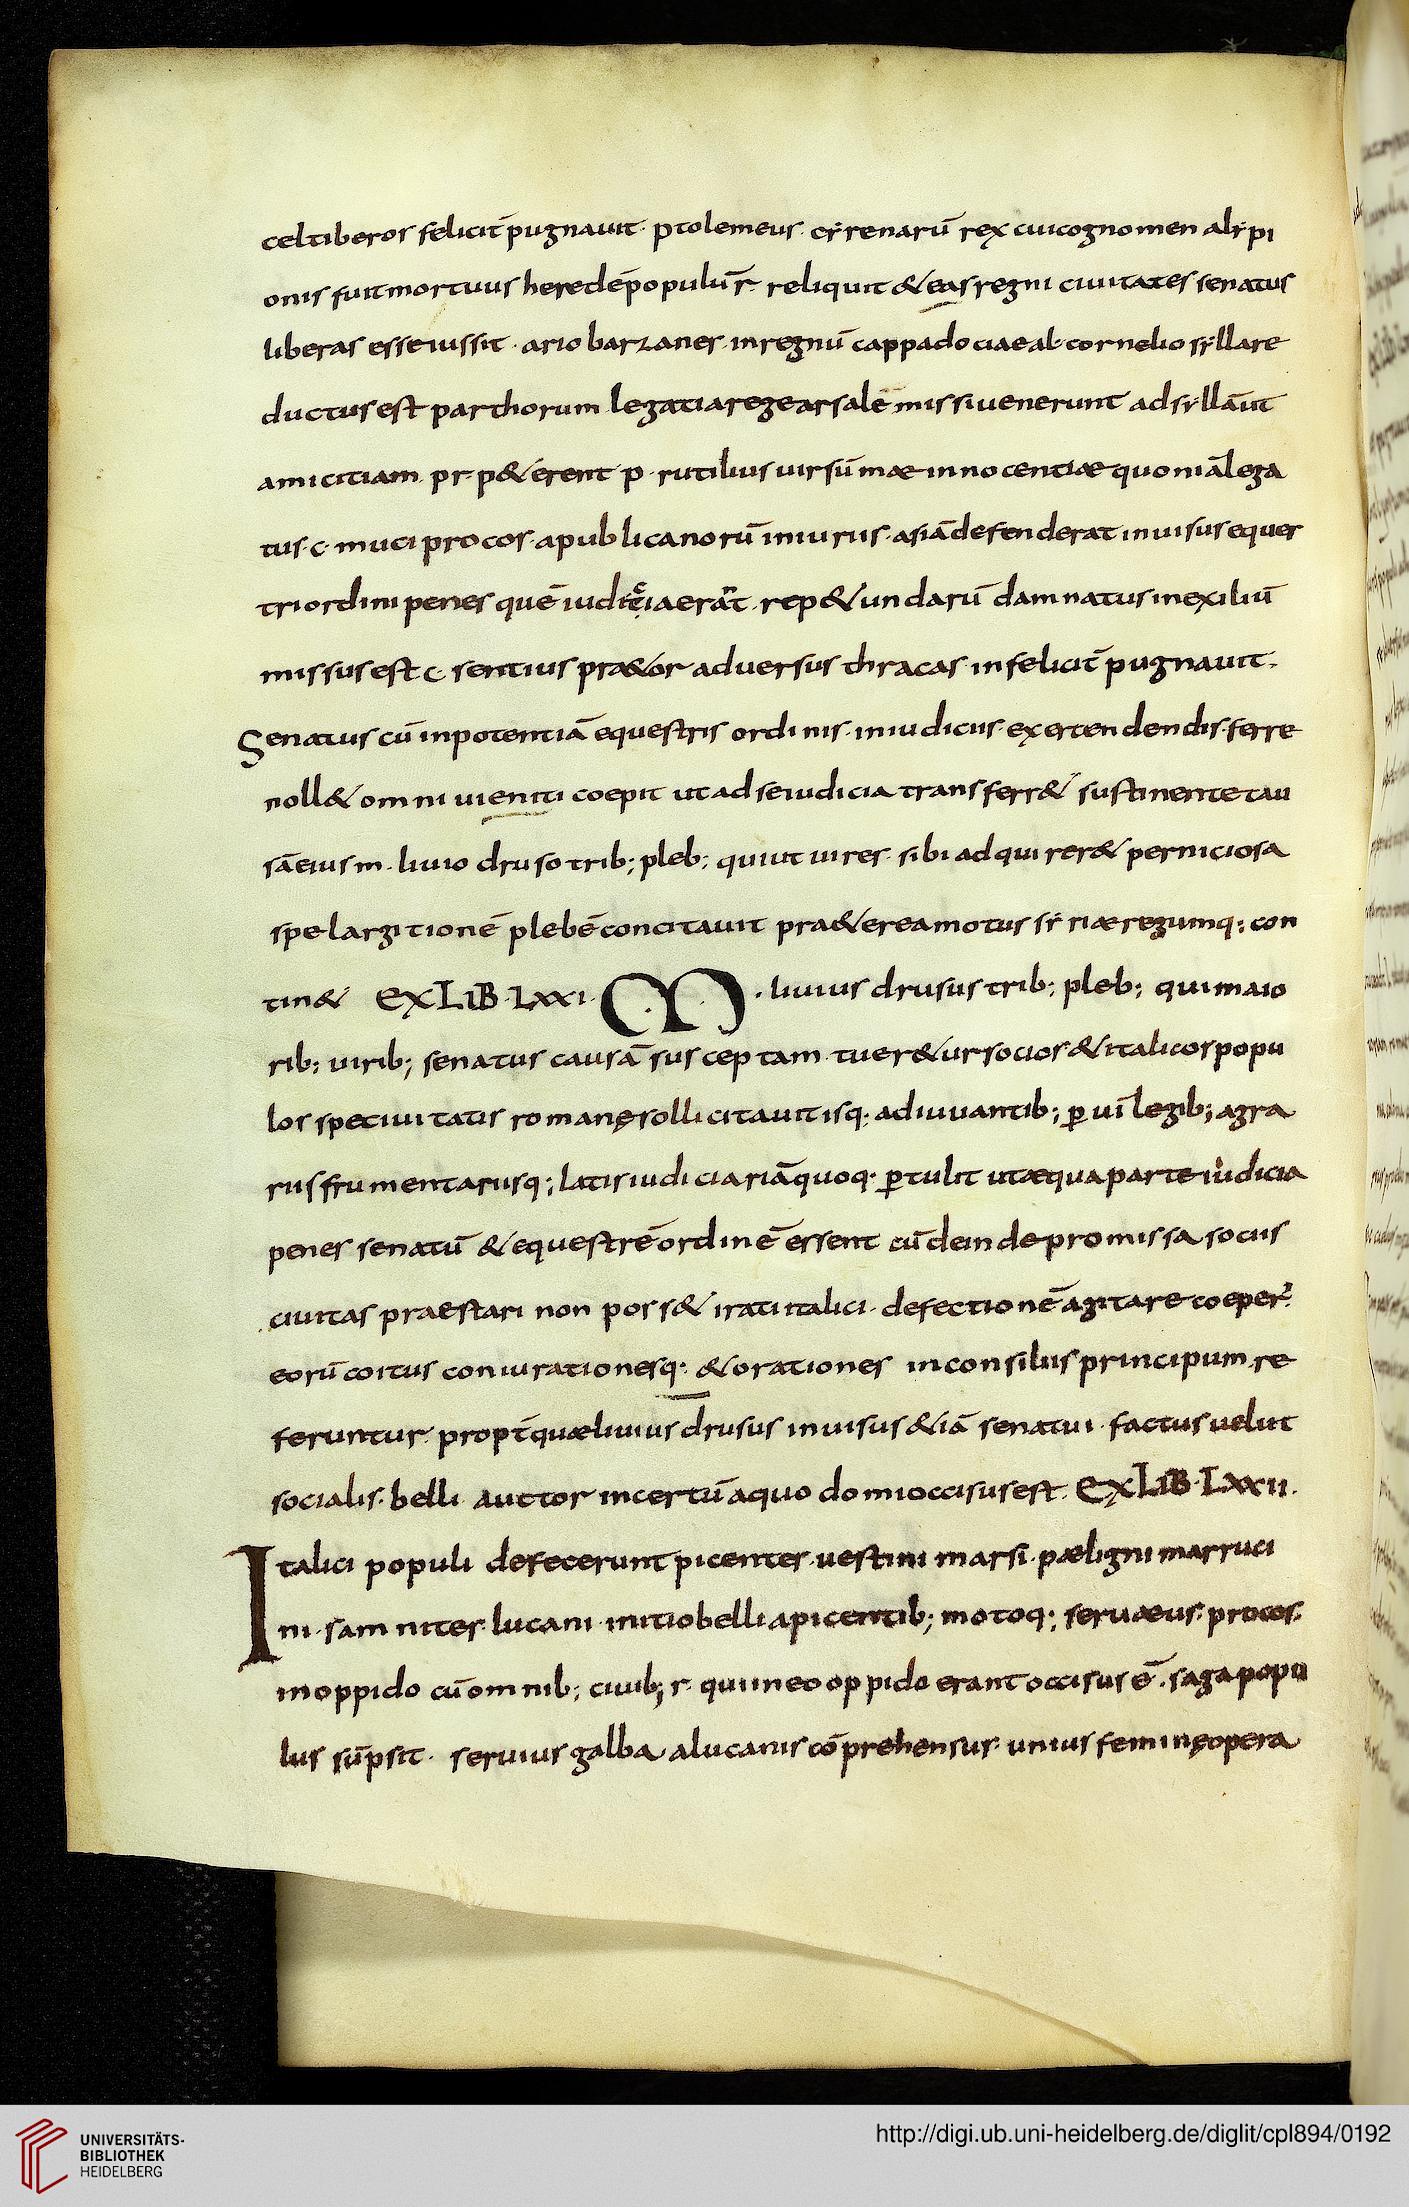 celtiberos felicit̄ pugnauit· ptolemeus· cẏrenarū rex cui cognomen alẏpi
onis fuit mortuus heredē populū r̄· reliquit & eas regni ciuitates senatus
liberas esse iussit· ariobarzanes· in regnū cappadociae ab cornelio sẏlla re
ductus est parthorum legati a rege arsalē missi uenerunt ad sẏllā ut
amicitiam· p r p&erent· p· rutilius uir sūmæ innocentiæ quoniā lega
tus· c· muci procos· a publicanorū iniuriis· asiā defenderat inuisus eques
tri ordini penes quē iudicia erāt· rep&undarū damnatus in exiliū
missus est c· sentius pra&or aduersus thracas infelicit̄ pugnauit·
Senatus cū inpotentiā equestris ordinis· in iudiciis· exertendendis· ferre
noll& omni uieniti coepit ut ad se iudicia transferr& sustinente tau
sā eius m· liuio druso trib; pleb; qui ut uires· sibi adquirer& perniciosa
spe largitionē plebē concitauit pra&erea motus sẏriæ regumq; con
tin& EX LIB LXXI· M· liuius drusus trib; pleb; qui maio
rib; uirib; senatus causā susceptam tuer&ur socios & italicos popu
los spe ciuitatis romanę sollicitauit isq; adiuuantib; ꝑ uī legib; agra
riis frumentariisq; latis iudiciariā quoq· ꝑtulit ut æqua parte iudicia
penes senatū & equestrē ordinē essent cū deinde promissa sociis
ciuitas praestari non poss& irati italici· defectionē agitare coeper̄·
eorū coitus coniurationesq; & orationes in consiliis principum re
feruntur· propt̄ quæ liuius drusus inuisus &iā senatui· factus uelut
socialis· belli auctor incertū a quo domi occisus est· EX LIB· LXXII·
Italici populi defecerunt picentes· uestini marsi· pæligni marruci
ni· samnites· lucani· initio belli a picentib; motoq; seruæus· procos·
in oppido cū omnib; ciuib; r· qui in eo oppido erant occisus ē· saga popu
lus sūpsit· seruius galba a lucanis cōprehensus· unius feminę opera
UNIVERSITÄTS-
BIBLIOTHEK
HEIDELBERG
http://digi.ub.uni-heidelberg.de/diglit/cpl894/0192